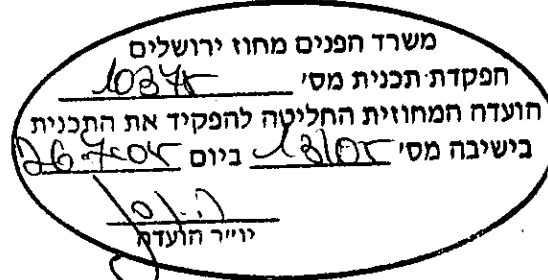 משרד הפנים מחוז ירושלים
הפקדת תכנית מס' 10375
הועדה המחוזית החליטה להפקיד את התכנית
בישיבה מס' 13/05 ביום 26.7.05
יו"ר הועדה